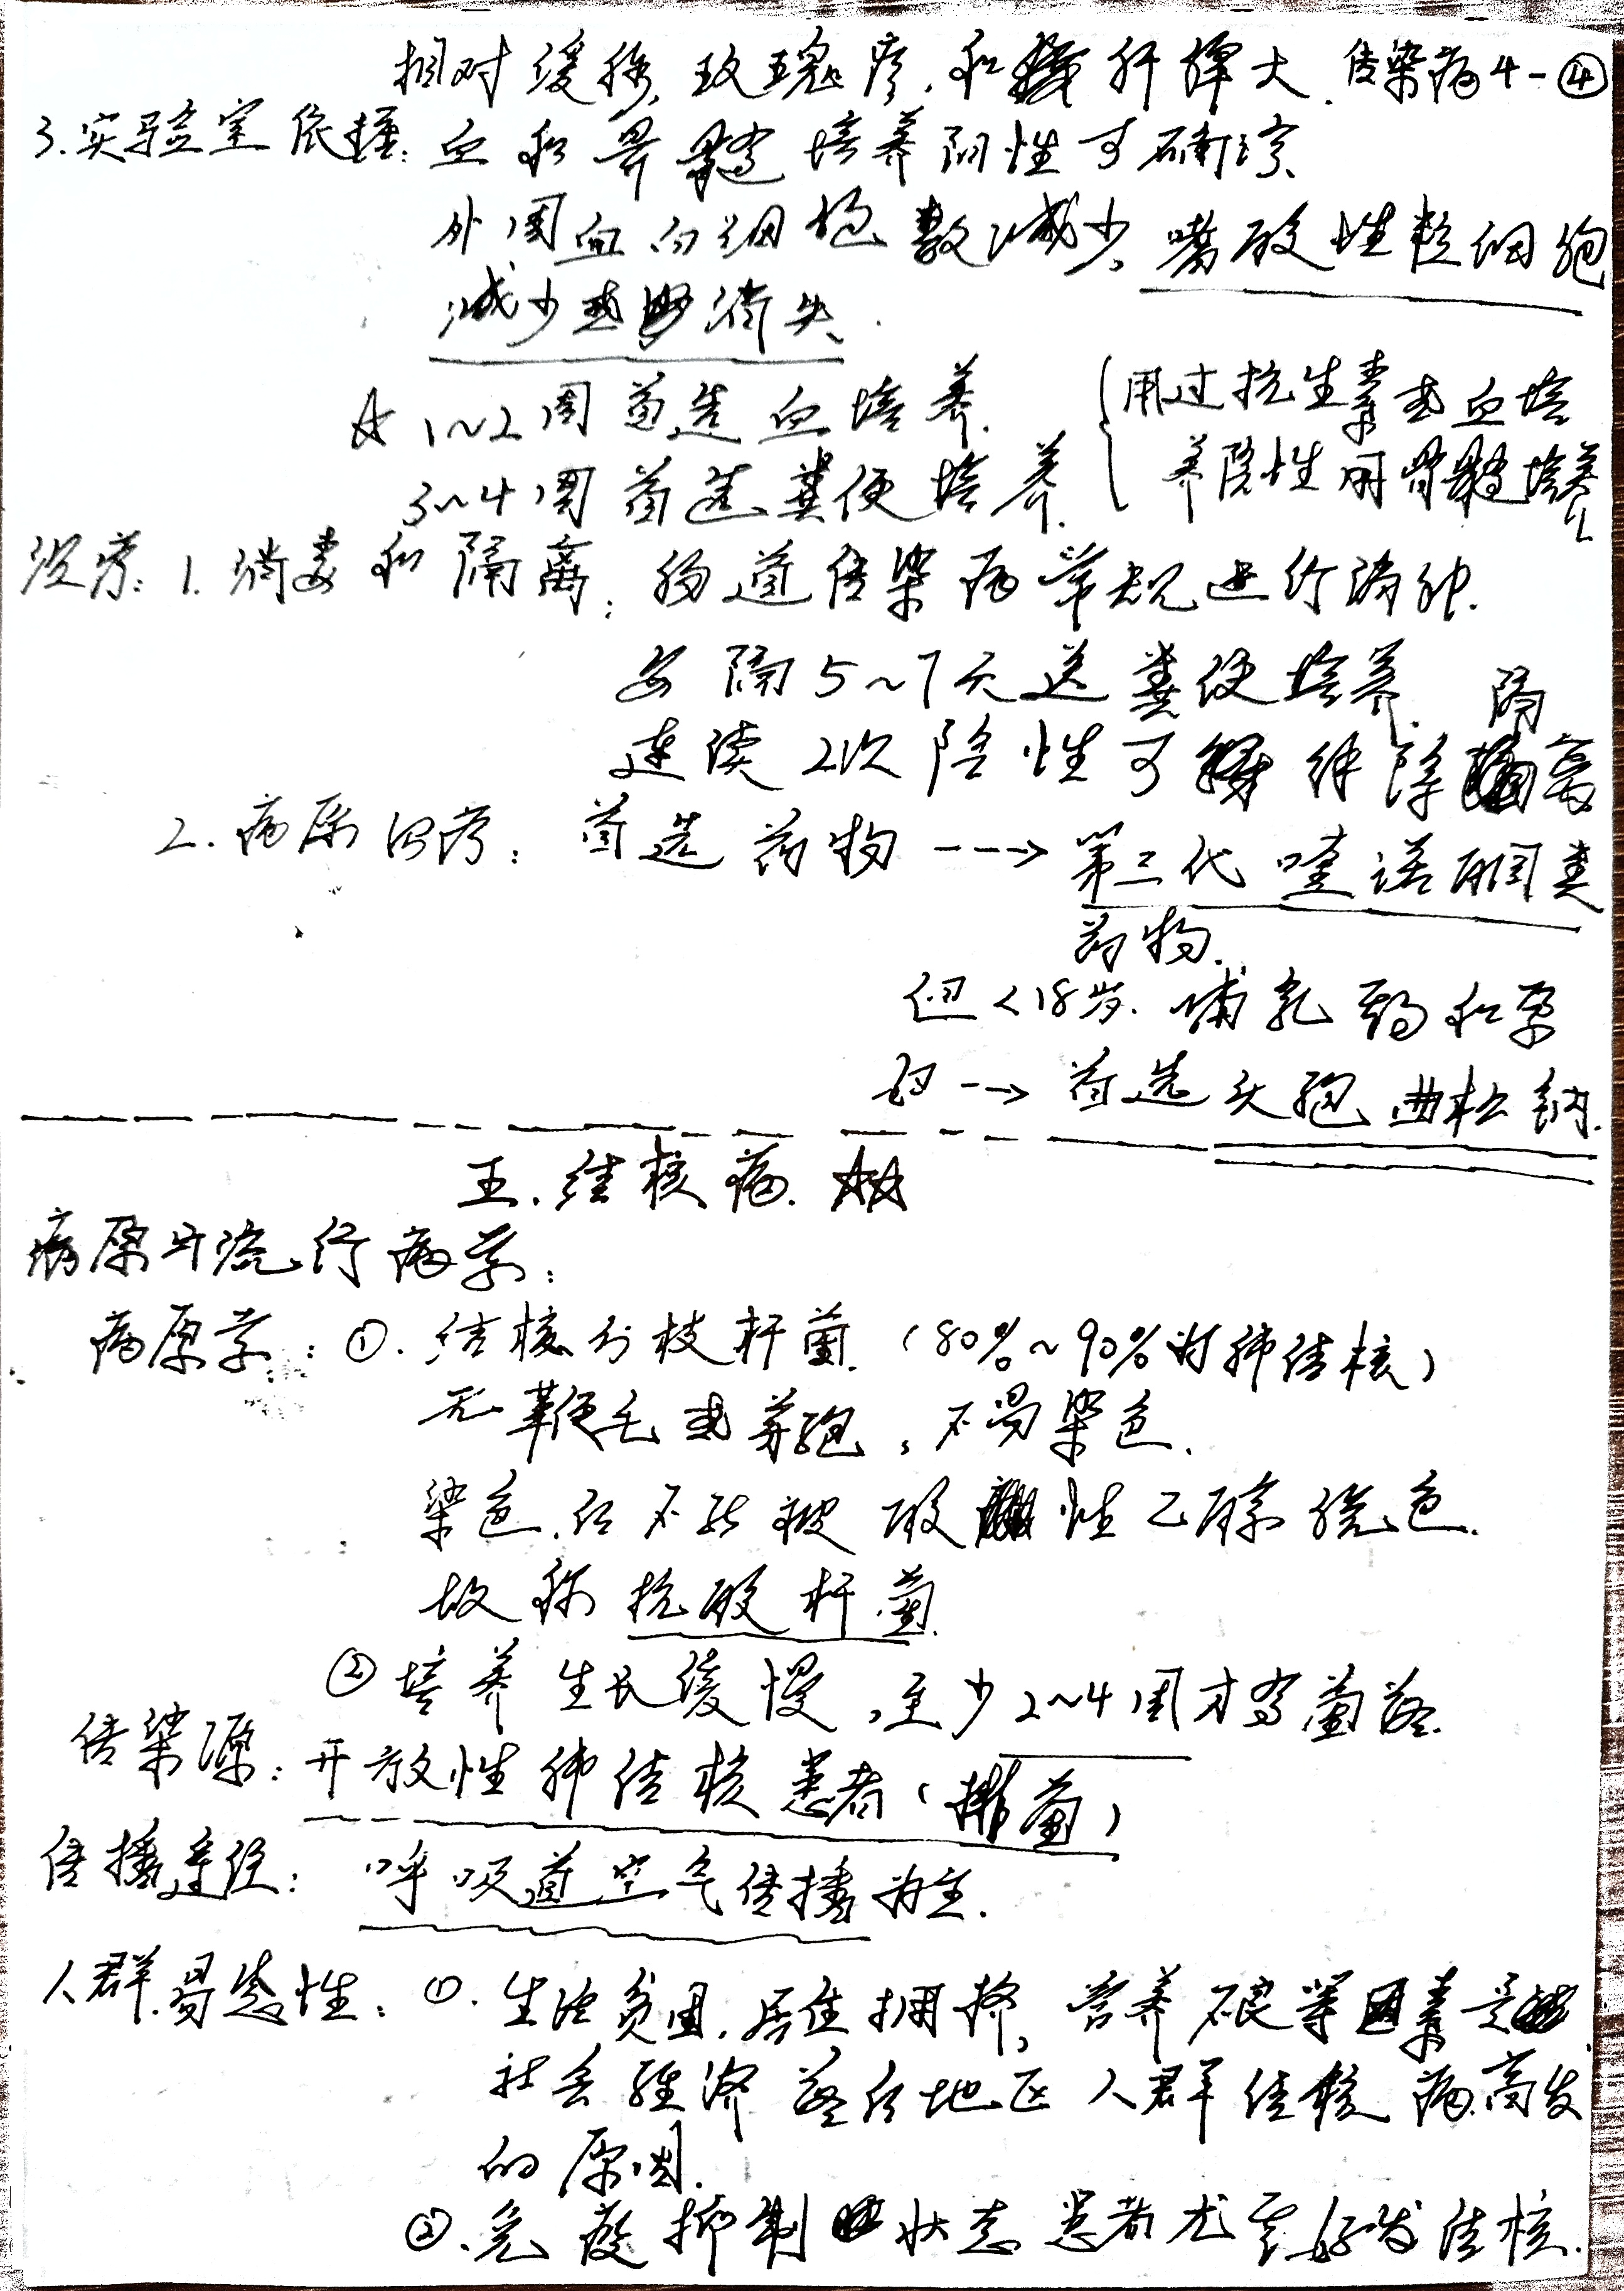 相对缓脉, 玫瑰疹, 和肝脾大. 传染病4-④
3.实验室依据: 血和骨髓培养阳性可确诊、
外周血白细胞数减少, 嗜酸性粒细胞
减少或消失.
☆ 1~2周首选血培养. {用过抗生素或血培
3~4周首选粪便培养. 养阴性用骨髓培养
治疗: 1. 消毒和隔离: 肠道传染病常规进行
每隔5~7天送粪便培养.
连续2次阴性可解除隔离
2. 病原治疗: 首选药物 ---> 第三代喹诺酮类
药物.
但<18岁. 哺乳期和孕
妇 --> 首选头孢曲松钠.
五. 结核病. ☆☆
病原与流行病学:
病原学: ①. 结核分枝杆菌. (80%~90%为肺结核)
无鞭毛或芽孢, 不易染色.
染色后不能被酸性乙醇脱色.
故称抗酸杆菌.
②培养生长缓慢, 至少2~4周才有菌落.
传染源: 开放性肺结核患者(排菌)
传播途径: 呼吸道空气传播为主.
人群易感性: ①. 生活贫困, 居住拥挤, 营养不良等因素是
社会经济落后地区人群结核病高发
的原因.
②. 免疫抑制状态患者尤其好发结核.